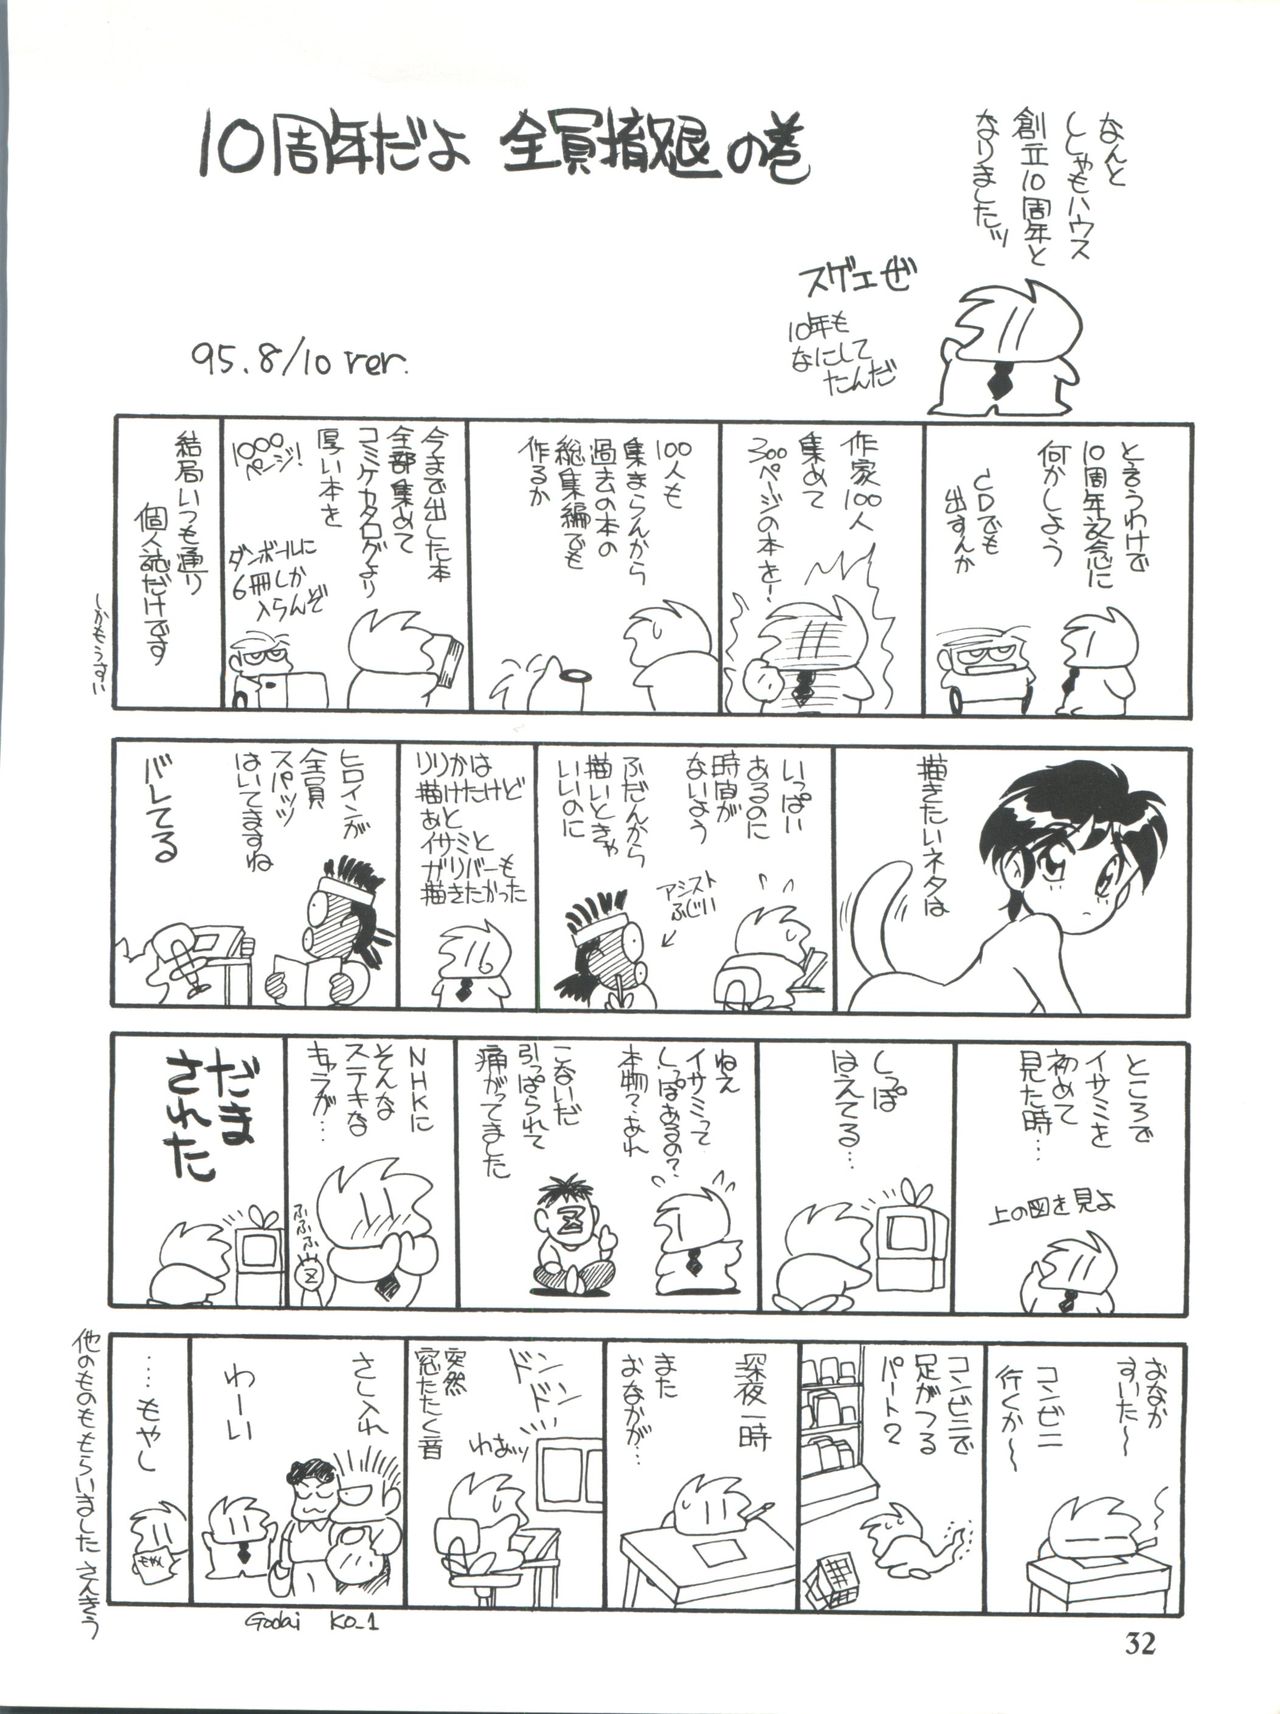 10周年だよ 全員撤退の巻
なんと
ししゃもハウス
創立10周年と
なりましたッ
スゲエぜ
10年も
なにして
たんだ
95.8/10 ver.
と言うわけで
10周年記念に
何かしよう
CDでも
出すんか
作家100人
集めて
300ページの本を!
100人も
集まらんから
過去の本の
総集編でも
作るか
今まで出した本
全部集めて
コミケカタログより
厚い本を
1000
ページ!
ダンボールに
6冊しか
入らんぞ
結局いつも通り
個人誌だけです
しかもうすい
描きたいネタは
いっぱい
あるのに
時間が
ないよう
ふだんから
描いときゃ
いいのに
アシスト
ふじい
りりかは
描けたけど
あと
イサミと
ガリバーも
描きたかった
ヒロインが
全員
スパッツ
はいてますね
バレてる
ところで
イサミを
初めて
見た時…
上の図を見よ
しっぽ
はえてる…
ねえ
イサミって
しっぽあるの?
本物?あれ
こないだ
引っぱられて
痛がってました
NHKに
そんな
ステキな
キャラが…
ふふふふ
だま
された
おなか
すいた〜
コンビニ
行くか〜
コンビニで
足がつる
パート2
深夜一時
また
おなかが…
ドン
ドン
突然
窓たたく音
わぁッ
さし入れ
わーい
…もやし
もやし
他のものももらいました さんきう
Godai KO_1
32